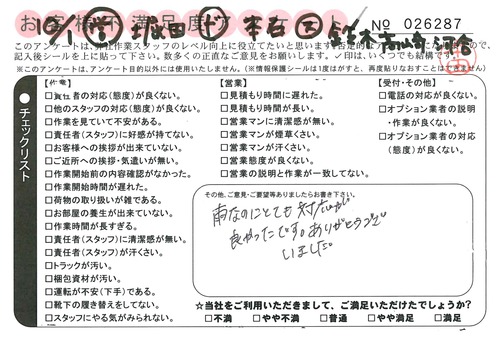 お客様不満足度アンケート
No 026287
このアンケートは、弊社作業スタッフのレベル向上に役立てたいと思います。否定的な
記入後シールを上に貼って下さい。数多くの正直なご意見をお願いします。✓印は、いくつでも結構です。
※このアンケートは、アンケート目的以外には使用いたしません。(※情報保護シールは1度はがすと、再度貼りなおすことはできません)
チェックリスト
【作業】
□責任者の対応(態度)が良くない。
□他のスタッフの対応(態度)が良くない。
□作業を見ていて不安がある。
□責任者(スタッフ)に好感が持てない。
□お客様への挨拶が出来ていない。
□ご近所への挨拶・気遣いが無い。
□作業開始前の内容確認がなかった。
□作業開始時間が遅れた。
□荷物の取り扱いが雑である。
□お部屋の養生が出来ていない。
□作業時間が長すぎる。
□責任者(スタッフ)に清潔感が無い。
□責任者(スタッフ)が汗くさい。
□トラックが汚い。
□梱包資材が汚い。
□運転が不安(下手)である。
□靴下の履き替えをしてない。
□スタッフにやる気がみられない。
【営業】
□見積もり時間に遅れた。
□見積もり時間が長い。
□営業マンに清潔感が無い。
□営業マンが煙草くさい。
□営業マンが汗くさい。
□営業態度が良くない。
□営業の説明と作業が一致してない。
【受付・その他】
□電話の対応が良くない。
□オプション業者の説明
・作業が良くない。
□オプション業者の対応
(態度)が良くない。
その他、ご意見・ご要望等ありましたらお書き下さい。
雨なのにとても対応が
良かったです。ありがとうござ
いました。
☆当社をご利用いただきまして、ご満足いただけたでしょうか?
□不満 □やや不満 □普通 □やや満足 □満足